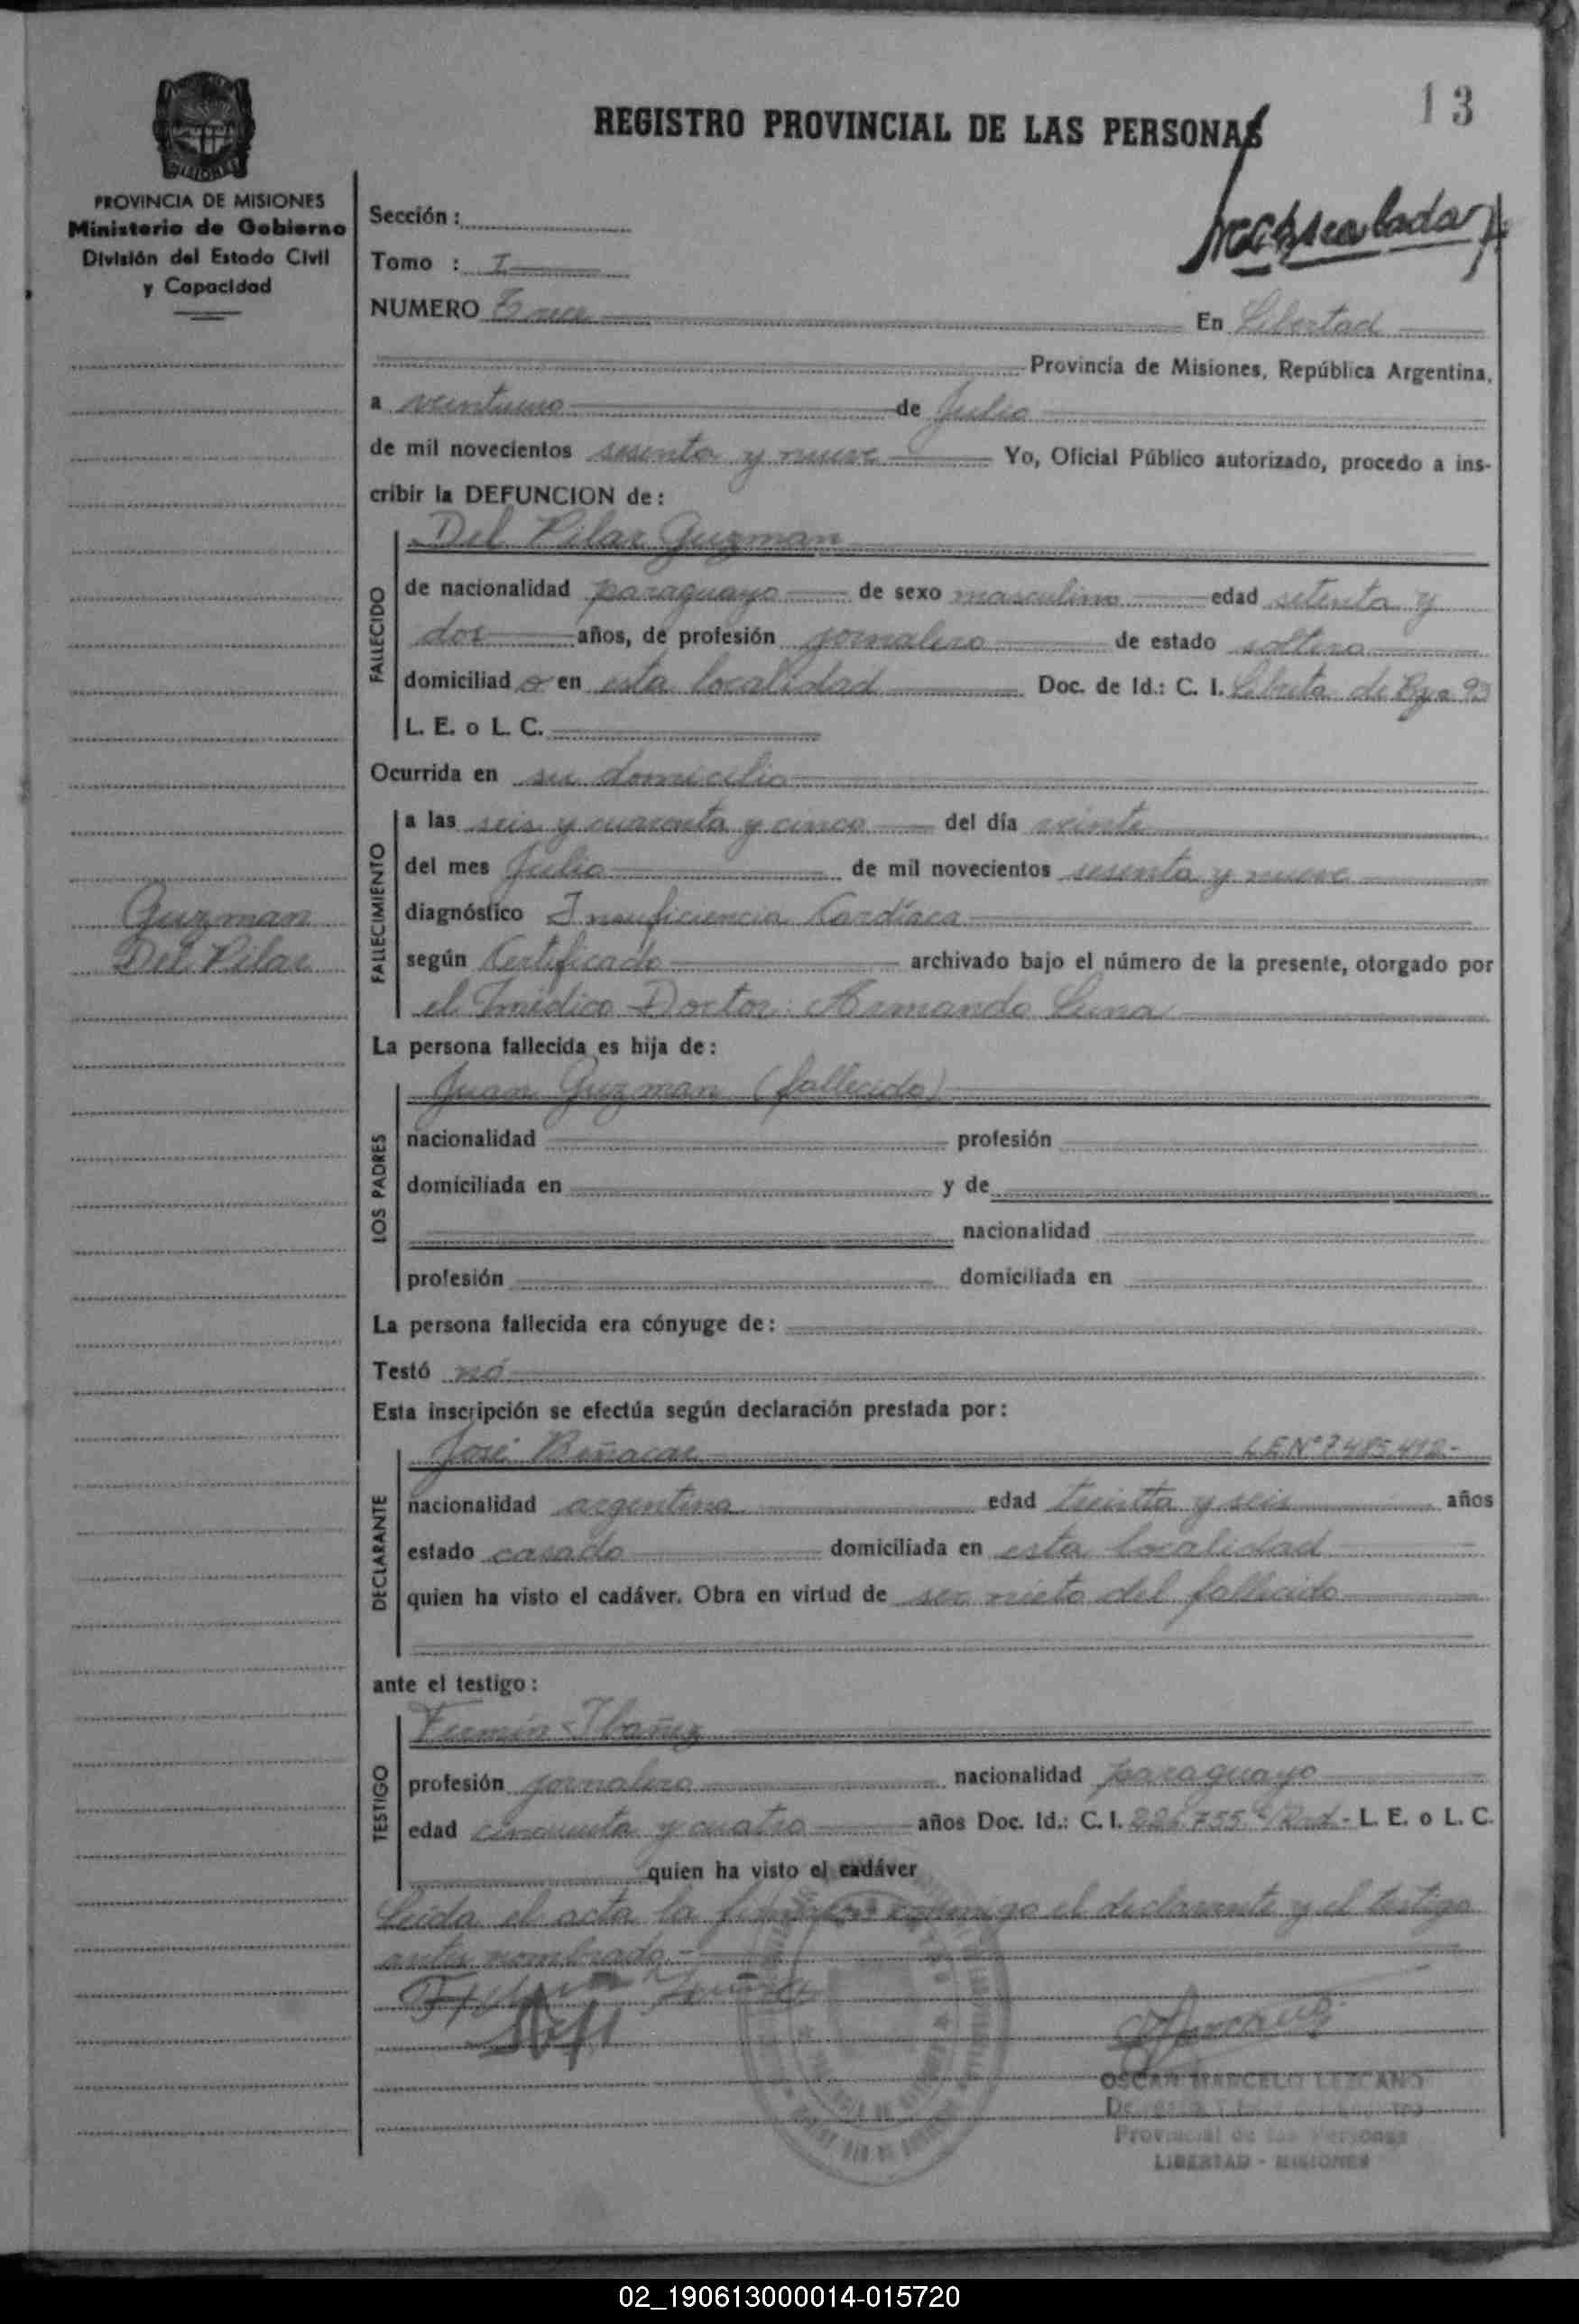 13
REGISTRO PROVINCIAL DE LAS PERSONAS
MISIONES
PROVINCIA DE MISIONES
Ministerio de Gobierno
División del Estado Civil
y Capacidad
Sección :
Tomo : I
NUMERO Trece En Libertad
Provincia de Misiones, República Argentina,
a veintiuno de Julio
de mil novecientos sesenta y nueve Yo, Oficial Público autorizado, procedo a ins-
cribir la DEFUNCION de :
Del Pilar Guzman
FALLECIDO
de nacionalidad paraguayo de sexo masculino edad setenta y
dos años, de profesión jornalero de estado soltero
domiciliad o en esta localidad Doc. de Id.: C. I. Libreta de 93
L. E. o L. C.
Ocurrida en su domicilio
FALLECIMIENTO
a las seis y cuarenta y cinco del día veinte
del mes Julio de mil novecientos sesenta y nueve
diagnóstico Insuficiencia Cardíaca
según Certificado archivado bajo el número de la presente, otorgado por
el médico Doctor: Armando Luna
Guzman
Del Pilar
La persona fallecida es hija de :
Juan Guzman (fallecido)
LOS PADRES
nacionalidad profesión
domiciliada en y de
nacionalidad
profesión domiciliada en
La persona fallecida era cónyuge de :
Testó nó
Esta inscripción se efectúa según declaración prestada por :
José L.E.Nº 7.485.412.-
DECLARANTE
nacionalidad argentina edad treintta y seis años
estado casado domiciliada en esta localidad
quien ha visto el cadáver. Obra en virtud de ser nieto del fallecido
ante el testigo :
Fermín Ibañez
TESTIGO
profesión jornalero nacionalidad paraguayo
edad cincuenta y cuatro años Doc. Id.: C. I. L. E. o L. C.
quien ha visto el cadáver
Leida el acta la firmaron conmigo el declarante y el testigo
antes nombrado.-
OSCAR MARCELO LEZCANO
Provincial de las Personas
LIBERTAD - MISIONES
02_190613000014-015720